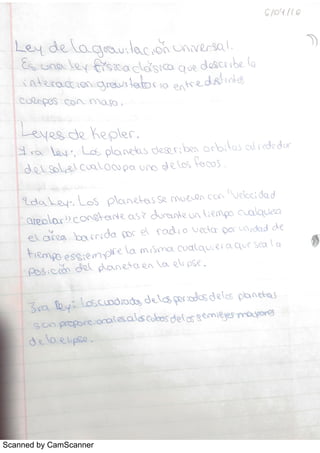 6/09/16
Ley de la gravitación universal.
Es una ley física clásica que describe la
interaccion gravitatoria entre distintos
cuerpos con masa.
Leyes de Kepler.
1ra ley: Los planetas describen orbitas alrededor
del sol el cual ocupa uno de los focos.
2da Ley: Los planetas se mueven con "velocidad
areolar" constante así durante un tiempo cualquiera
el area barrida por el radio vector por unidad de
tiempo es siempre la misma cualquiera que sea la
posición del planeta en la elipse.
3ra ley: Los cuadrados de los periodos de los planetas
son proporcionales a los cubos de los semiejes mayores
de la elipse.
Scanned by CamScanner